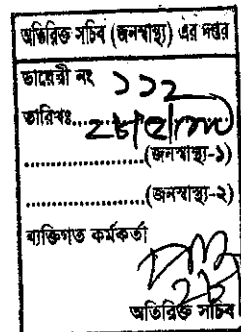 অতিরিক্ত সচিব (জনস্বাস্থ্য) এর দপ্তর
ডায়েরী নং ১১২
তারিখঃ
....................(জনস্বাস্থ্য-১)
....................(জনস্বাস্থ্য-২)
ব্যক্তিগত কর্মকর্তা
অতিরিক্ত সচিব